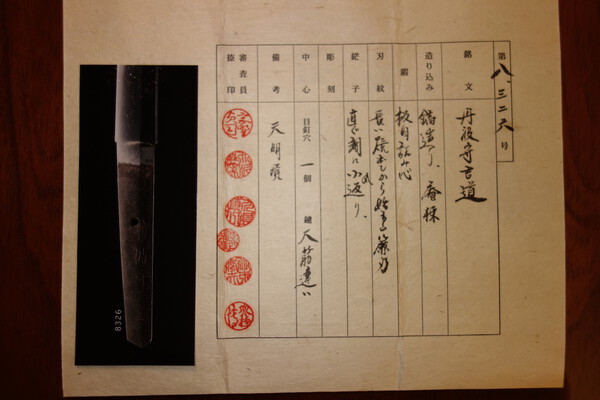 第八、三二六号
銘文 丹後守吉道
造り込み 鎬造り、庵棟
鍛 板目
刃紋 長い焼出しから始まり簾刃
鋩子 直ぐ調に小返り、
彫刻
中心 目釘穴 一個 鑢 大筋違い
備考 天明頃
審査員捺印
8326